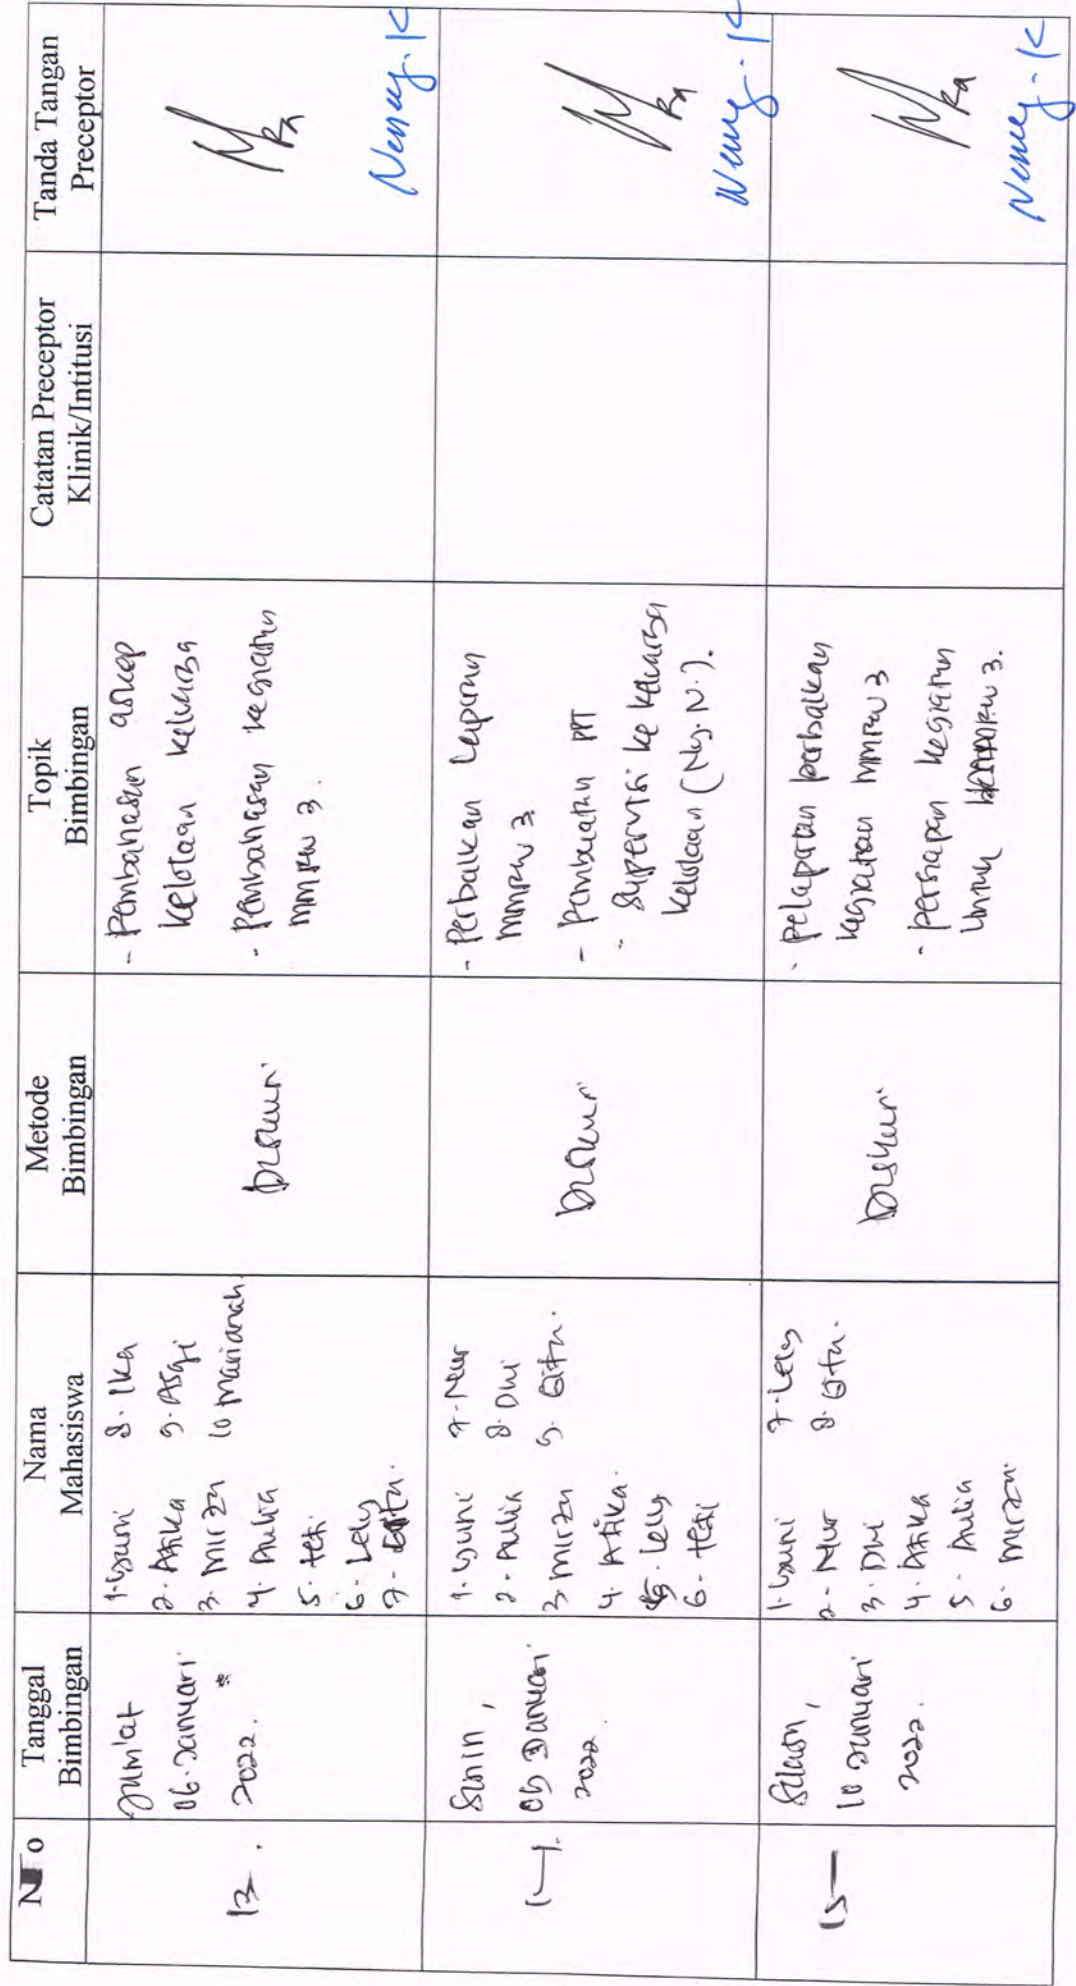 No
Tanggal
Bimbingan
Nama
Mahasiswa
Metode
Bimbingan
Topik
Bimbingan
Catatan Preceptor
Klinik/Intitusi
Tanda Tangan
Preceptor
13.
Jum'at
06. Januari
2022.
1. Yuni
2. Atika
3. Mirza
4. Aulia
5. teti
6. Lely
7. Gita.
8. Ika
9. Asqi
10 Marianah
Diskusi
- Pembahasan askep
kelolaan keluarga
- Pembahasan kegiatan
MMRW 3.
Neneng. K
14.
Senin,
09 Januari
2022.
1. Yuni
2. Aulia
3. Mirza
4. Atika.
5. Lely
6. teti
7. Nur
8. Dwi
9. Gita.
Diskusi
- Perbaikan Laporan
MMRW 3
- Pembuatan PPT
- Supervisi ke keluarga
kelolaan (Ny. N.).
Neneng. K
15
Selasa,
10 Januari
2022.
1. Yuni
2. Nur
3. Dwi
4. Atika
5. Aulia
6. Mirza.
7. Lely
8. Gita.
Diskusi
- pelaporan perbaikan
kegiatan MMRW 3
- persiapan kegiatan
untuk 3.
Neneng. K